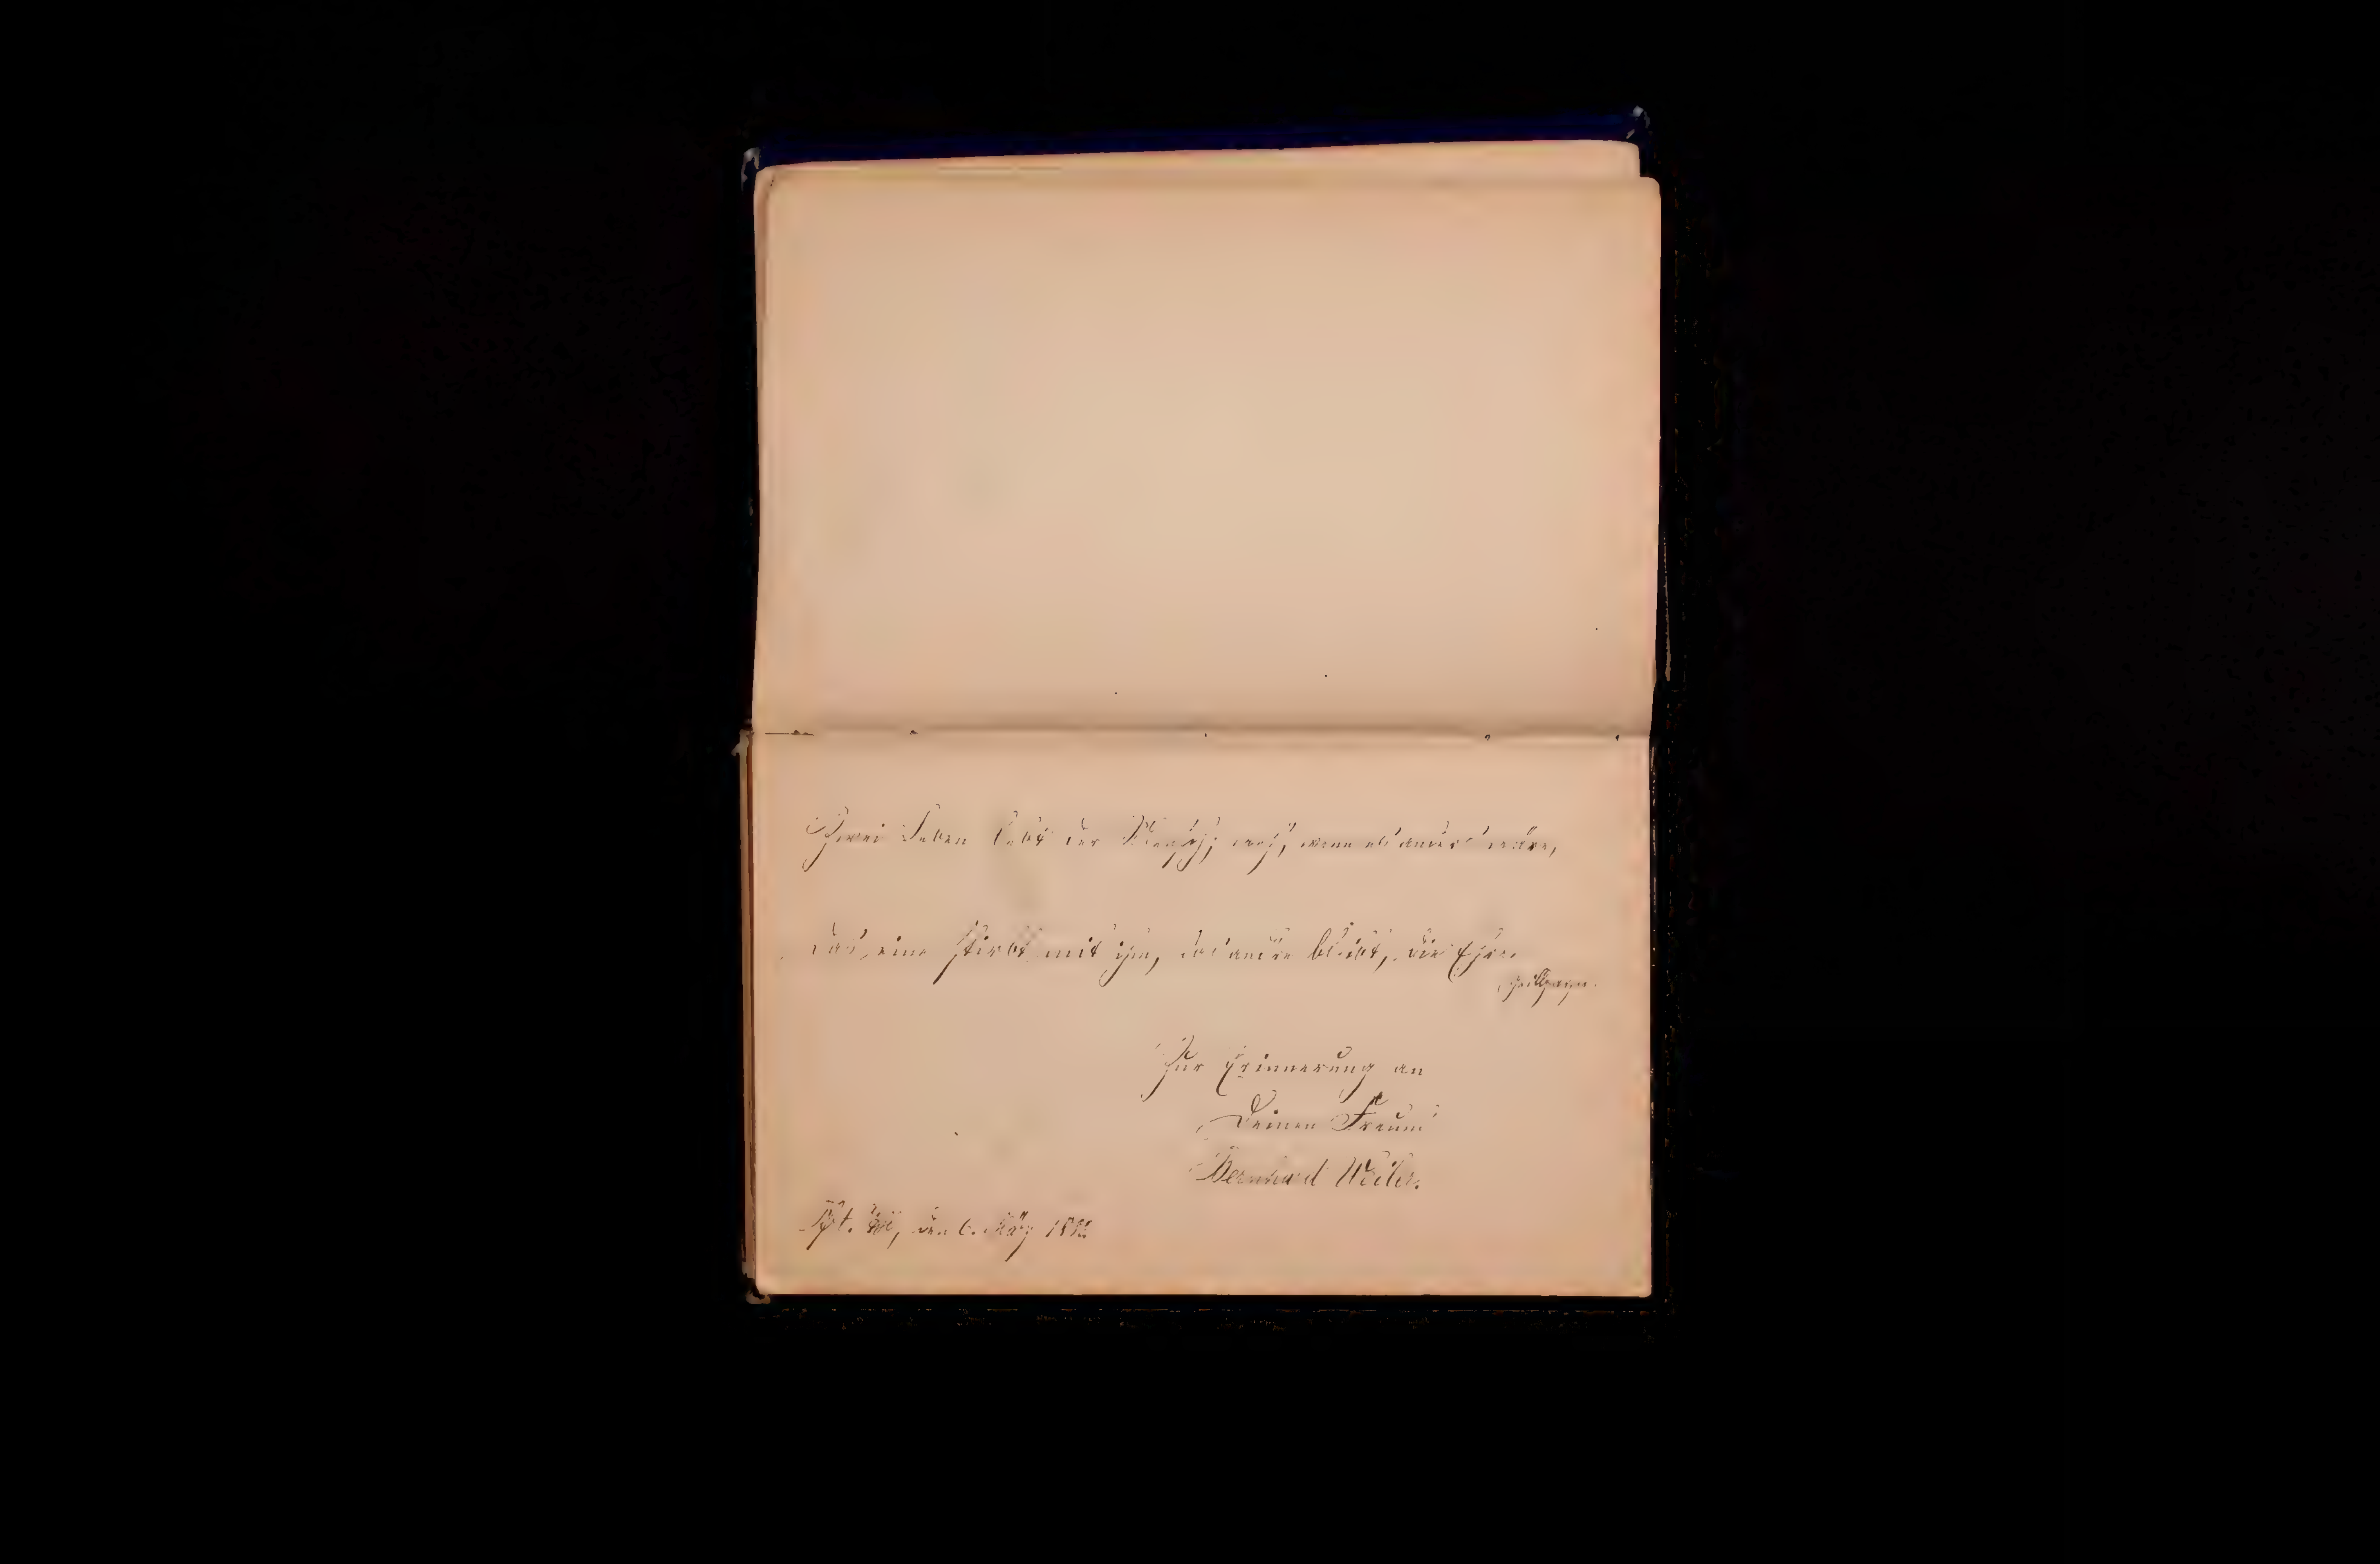 Zwei Leben lebt der Mensch; und, wenn eb' anders wäre,
Das eine stirbt mit ihm, das andre bleibt, die Ehre.
Zur Erinnerung an
Deinen Freund
Bernhard Weiler.
den 6. März